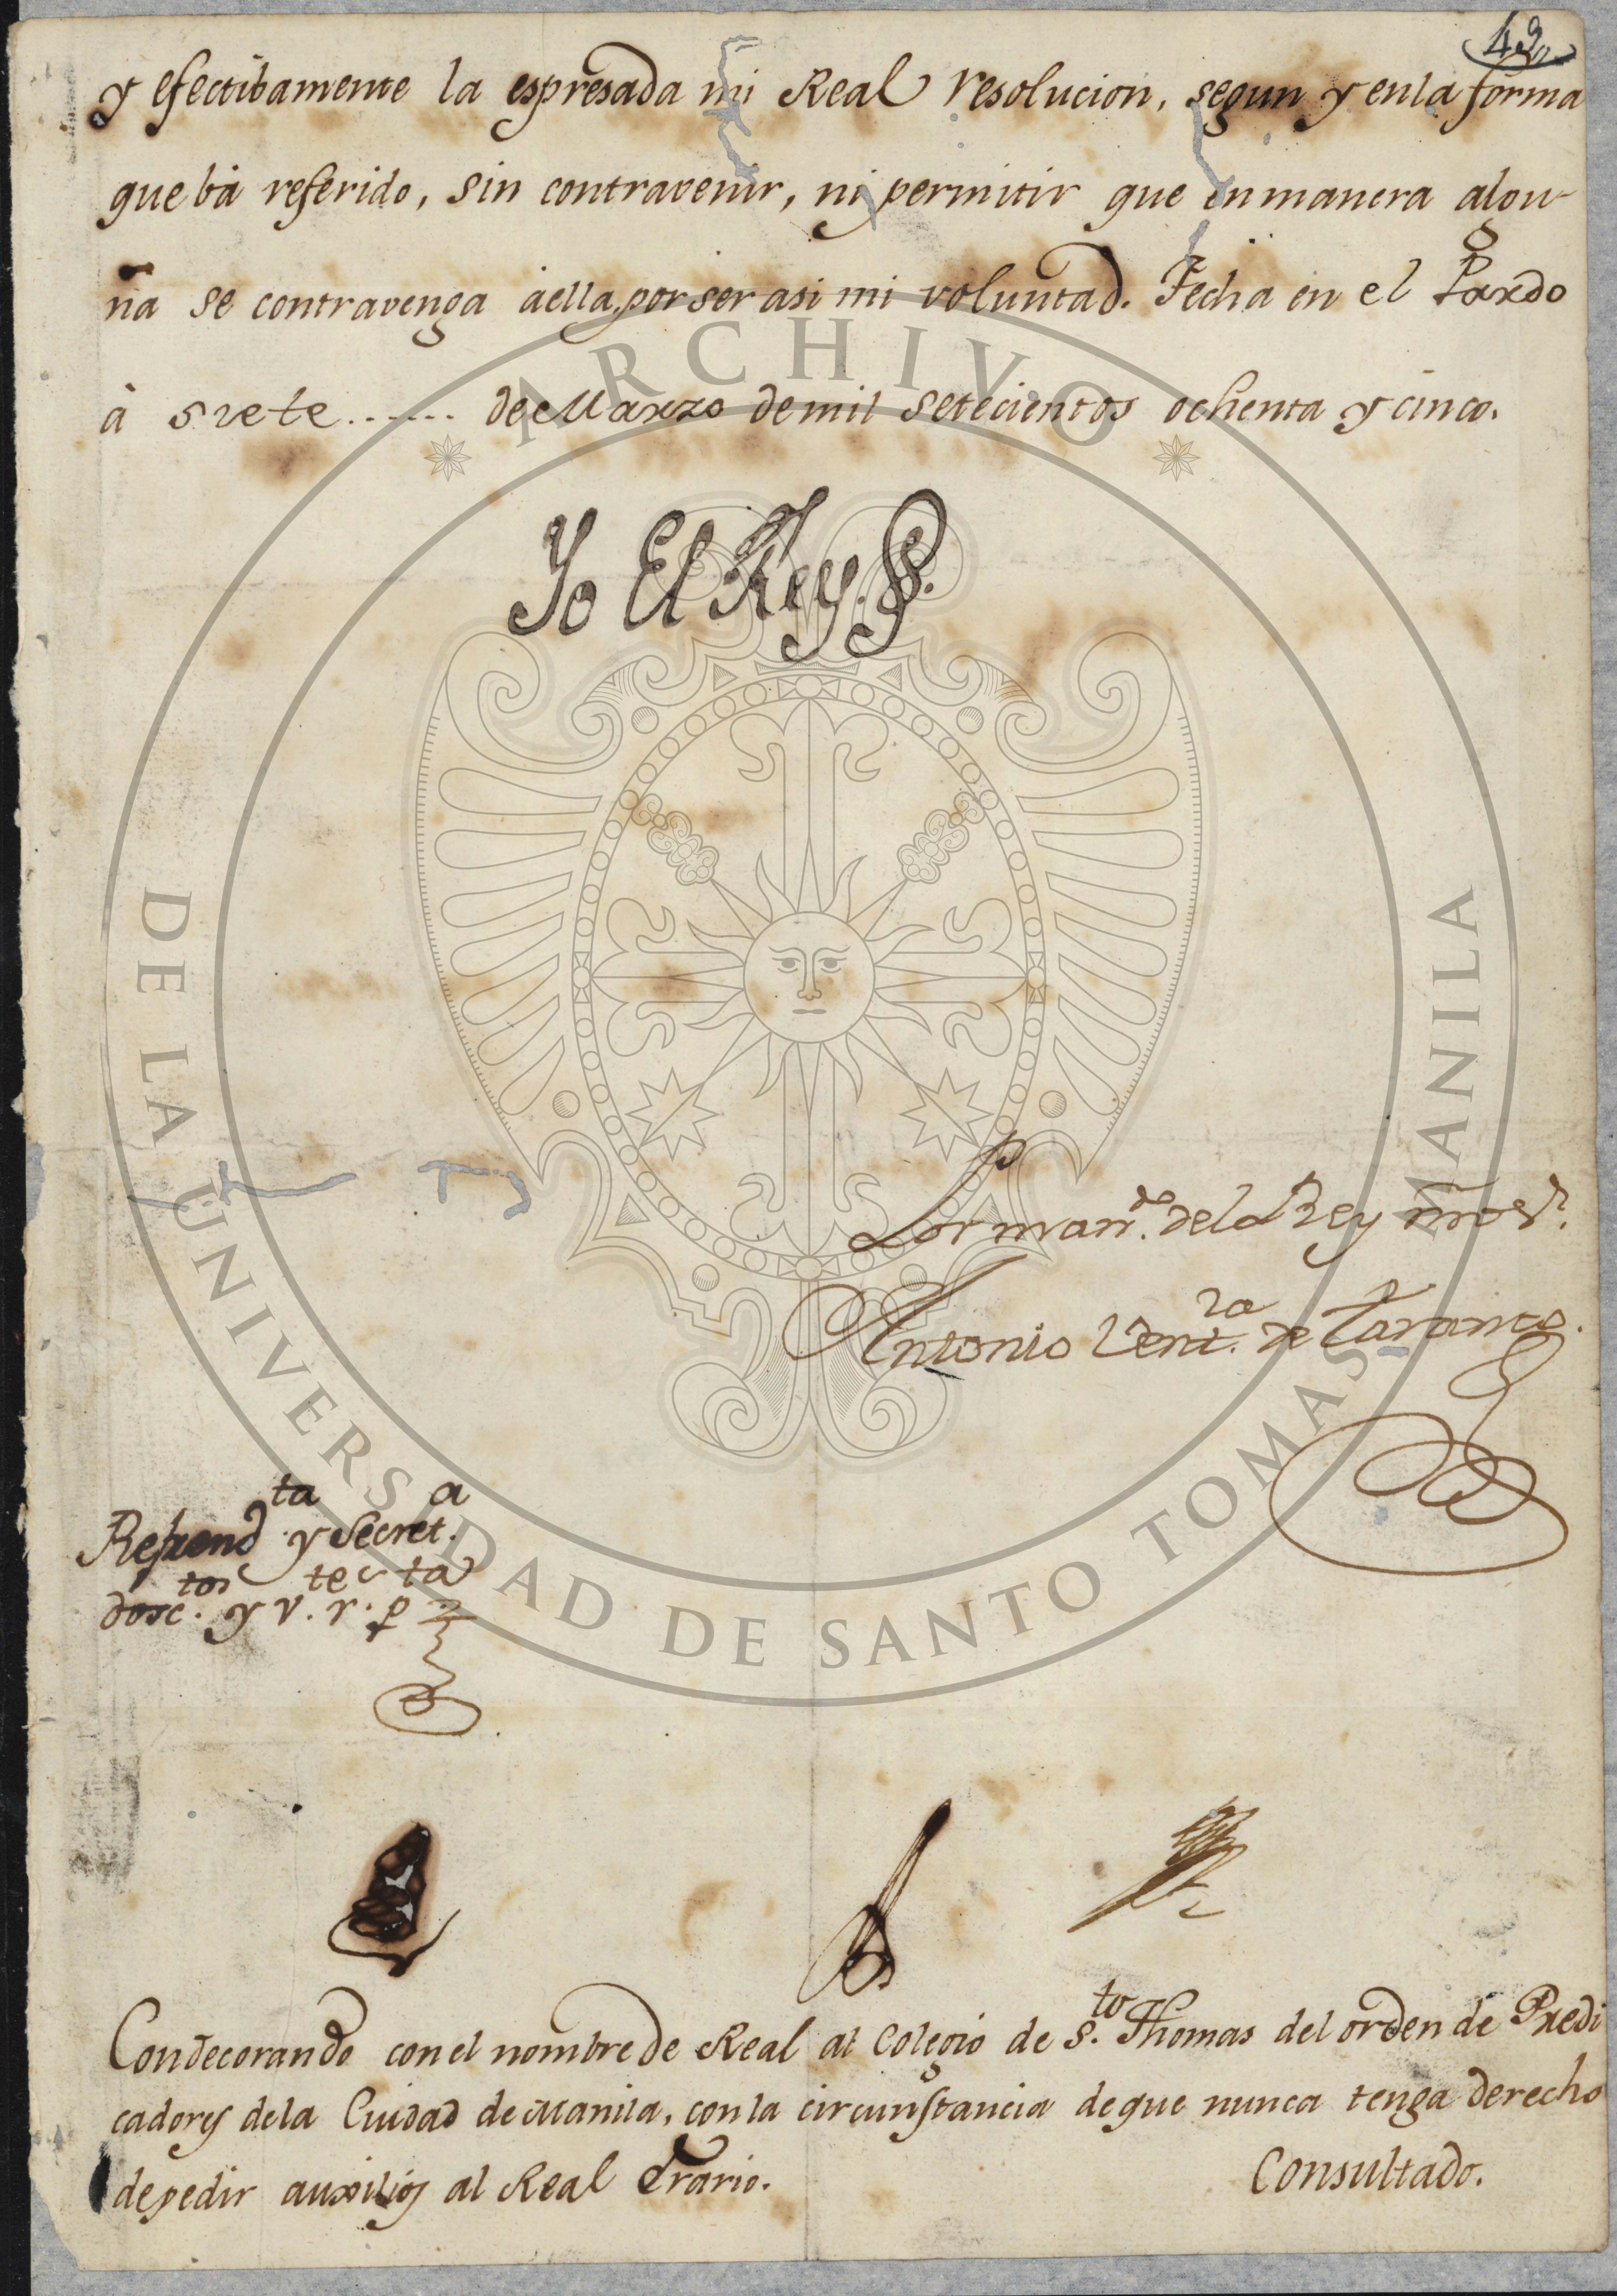 43
y efectibamente la espresada mi Real resolucion, segun y en la forma
que bà referido, sin contravenir, ni permitir que en manera algu-
na se contravenga àella, por ser asi mi voluntad. Fecha en el Pardo
à siete...... de Marzo de mil setecientos ochenta y cinco.
Yo El Rey
Por man.do del Rey nro s.r
Antonio Vent.ra de Taranco.
Refrend.ta y Secret.a
dosc.tos y v.te r.s p.ta
Condecorando con el nombre de Real al Colegio de S.to Thomas del orden de Predi
cadores de la Ciudad de Manila, con la circunstancia de que nunca tenga derecho
de pedir auxilios al Real Erario.
Consultado.
ARCHIVO
DE LA UNIVERSIDAD DE SANTO TOMAS MANILA